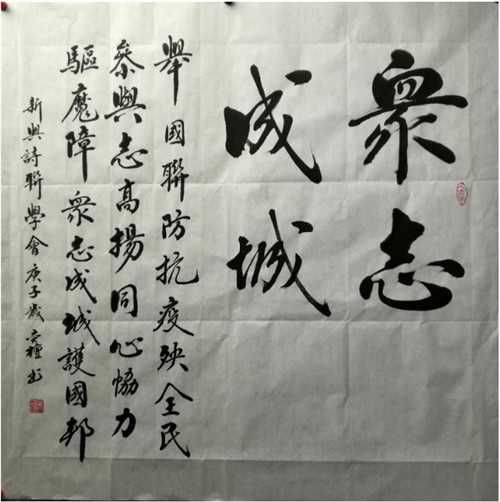 衆志
成城
舉國聯防抗疫殃全民
參與志高揚同心協力
驅魔障衆志成城護國邦
新興詩聯學會庚子歲